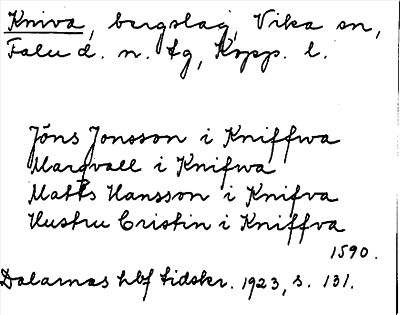 Kniva, bergslag, Vika sn,
Falu d. n. tg, Kopp. l.
Jöns Jonsson i Kniffwa
Margvall i Knifwa
Matts Hansson i Knifva
Hustru Cristin i Kniffva
1590.
Dalarnas hbf tidskr. 1923, s. 131.